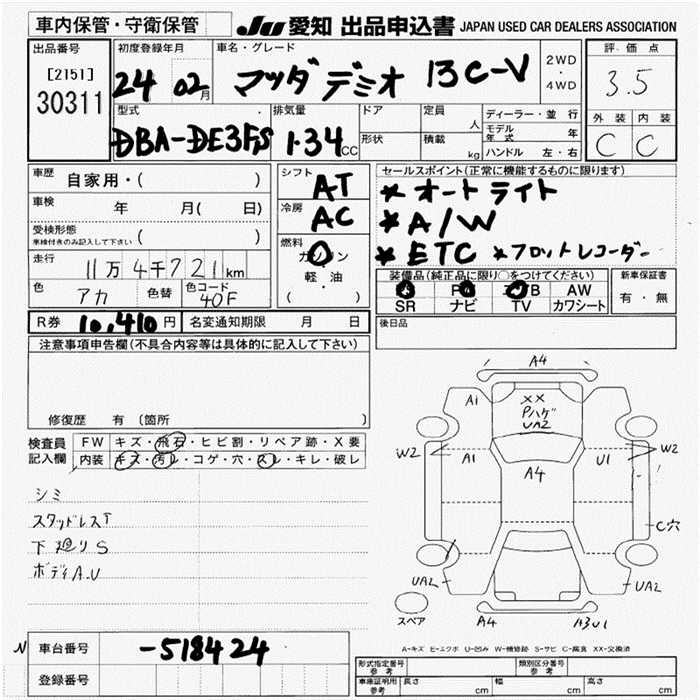 車内保管・守衛保管
JU 愛知 出品申込書 JAPAN USED CAR DEALERS ASSOCIATION
出品番号
[2151]
30311
初度登録年月
24 02月
車名・グレード
マツダ デミオ 13C-V
2WD
・
4WD
評価点
3.5
型式
DBA-DE3FS
排気量
1.34CC
ドア
形状
定員
人
積載
kg
ディーラー・並行
モデル年式 年
ハンドル 左・右
外装 内装
C C
車歴 自家用・( )
車検 年 月( 日)
受検形態
車検付きのみ記入して下さい ( )
走行 11万4千721km
色 アカ 色替 色コード 40F
シフト AT
冷房 AC
燃料
ガソリン
軽・油
( ・ )
セールスポイント(正常に機能するものに限ります)
*オートライト
*A/W
*ETC *フロットレコーダー
装備品(純正品に限り○をつけてください)
AW
SR ナビ TV カワシート
新車保証書
有・無
R券 10,410円 名変通知期限 月 日
後日品
注意事項申告欄(不具合内容等は具体的に記入して下さい)
修復歴 有(箇所 )
検査員記入欄
FW キズ・飛石・ヒビ割・リペア跡・X要
内装 キズ・汚レ・コゲ・穴・スレ・キレ・破レ
シミ
スタッドレスT
下廻りS
ボディA.U
A4
A1
XX
Pハゲ
UA2
W2
A1
A4
U1
W2
C穴
UA2
UA2
スペア
A4
A-キズ E-エクボ U-凹み W-補修跡 S-サビ C-腐食 XX-交換済
N
車台番号 -518424
登録番号
形式指定番号
参考
類別区分番号
参考
車庫証明用
参考
長さ cm 幅 cm 高さ cm